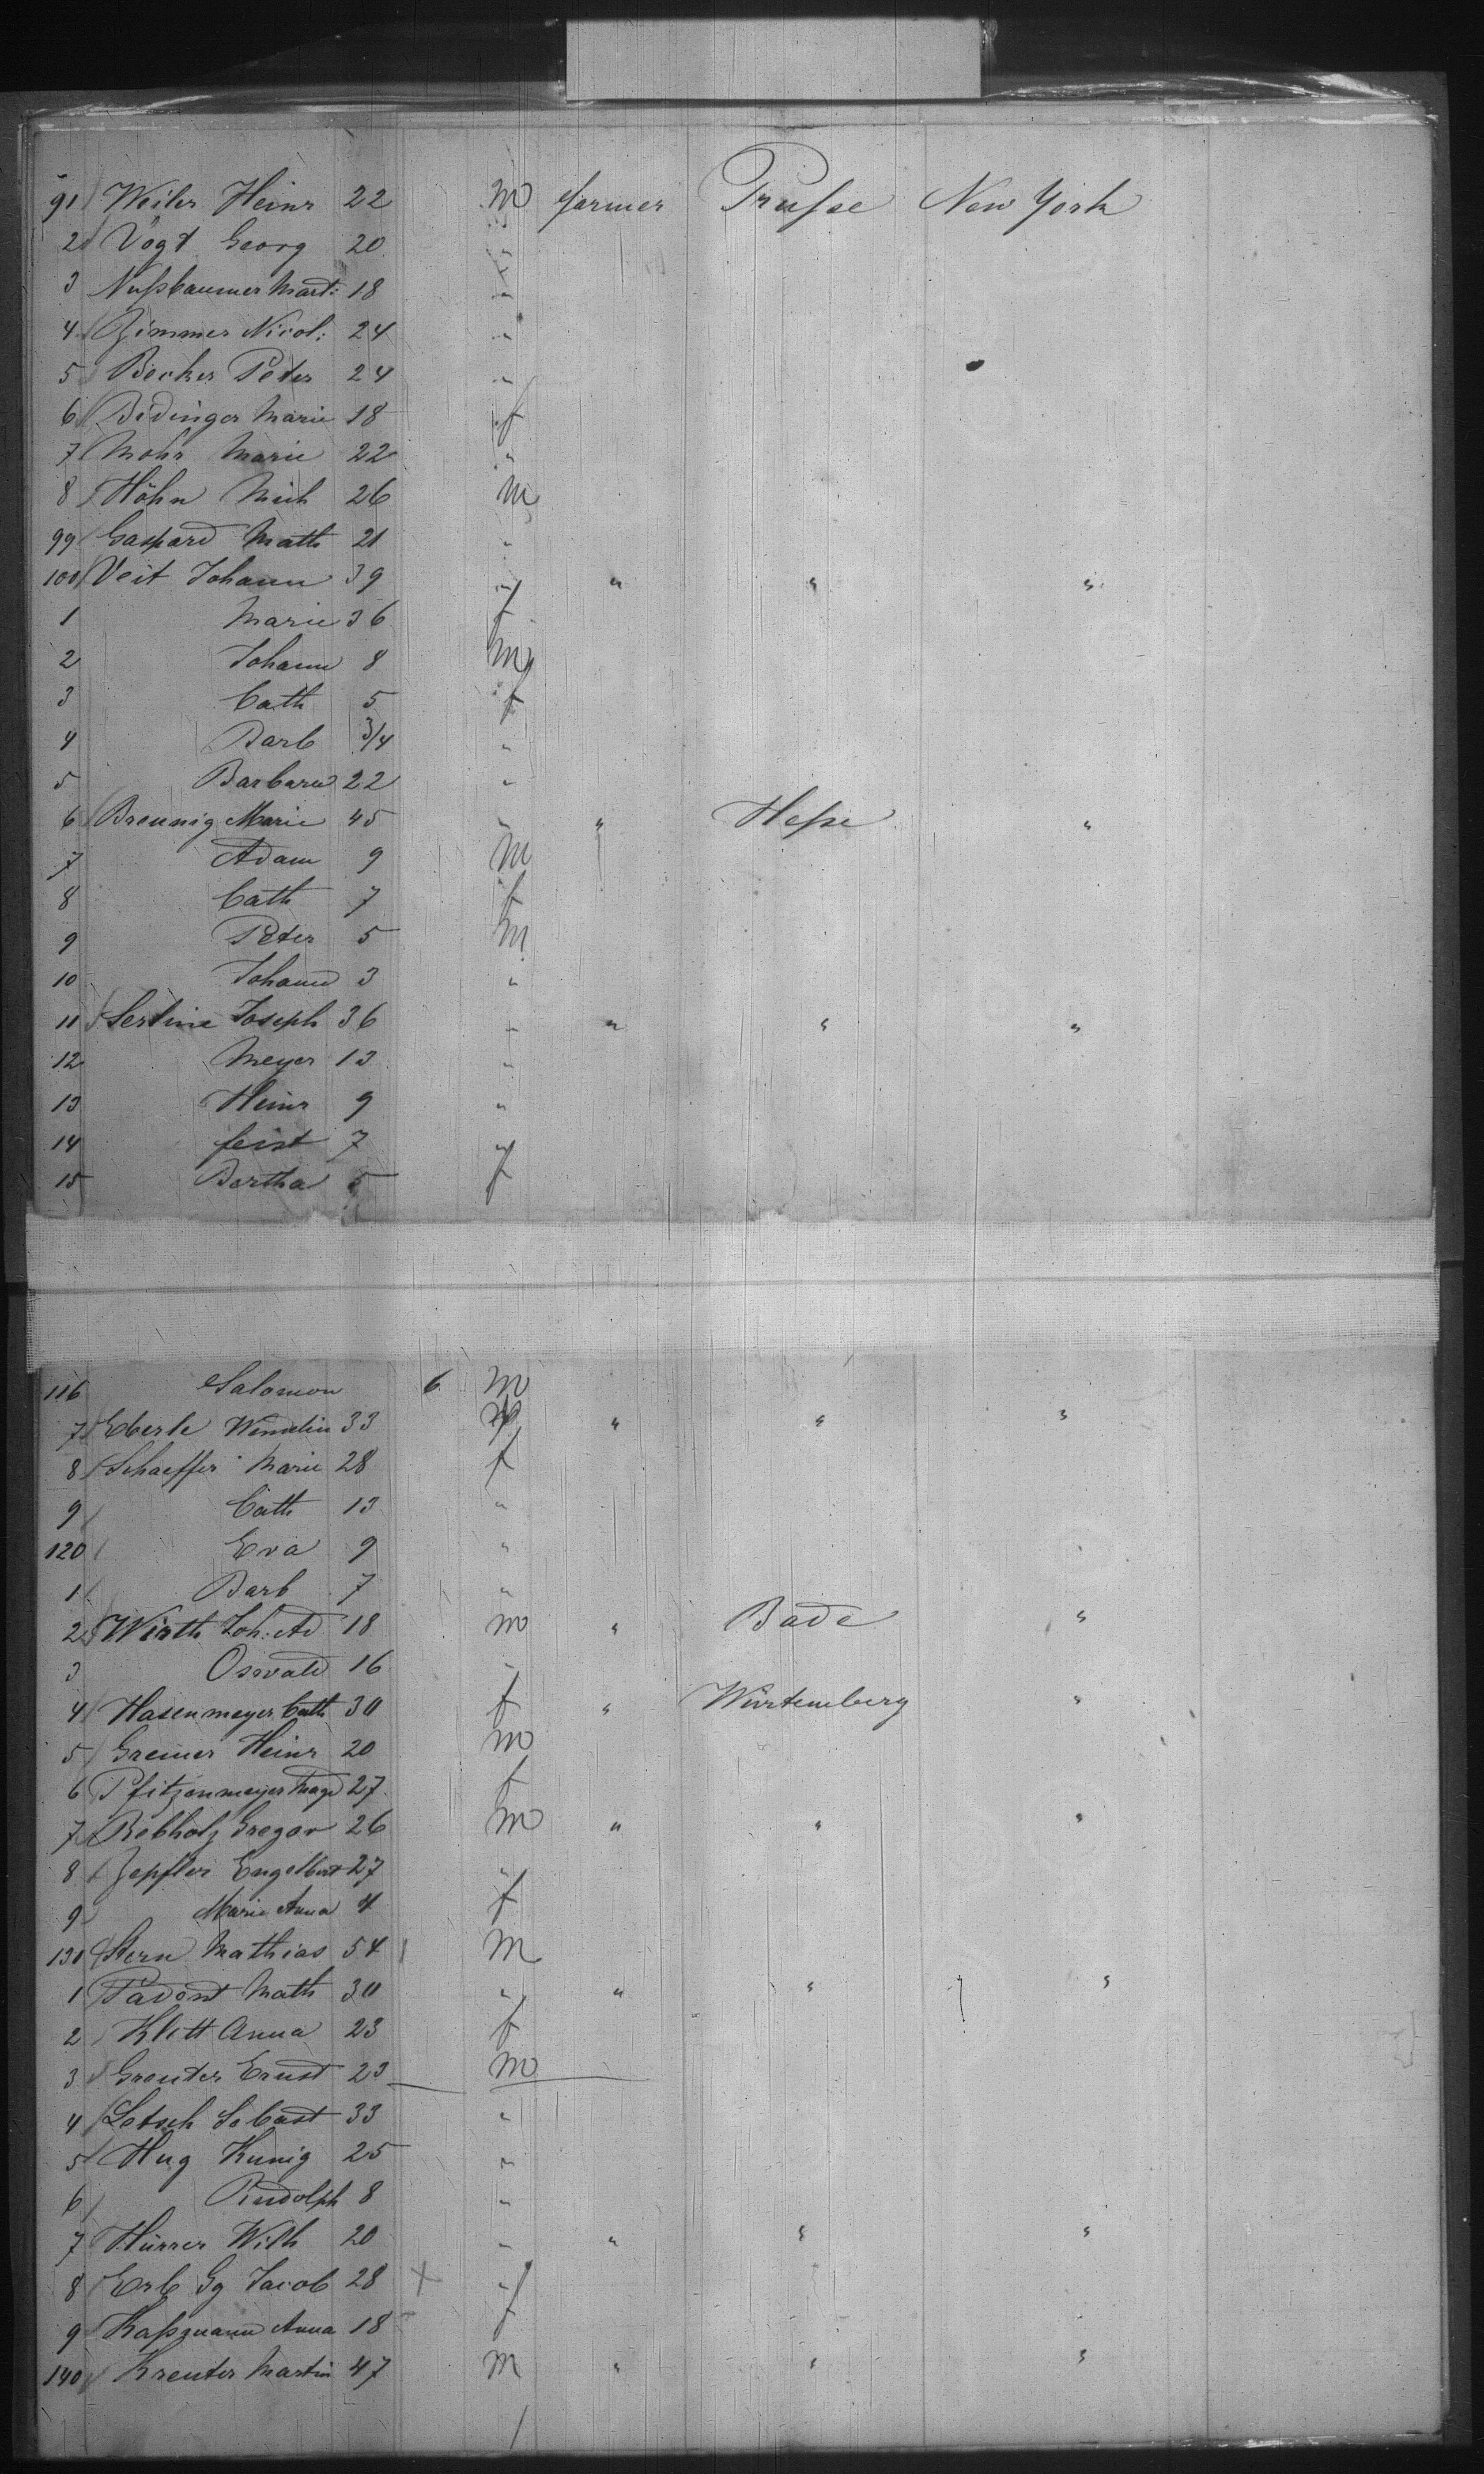 91 Weiler Heinr 22 m farmer Prusse New York
2 Vogt Georg 20 "
3 Nußbaumer Mart: 18 "
4 Zimmer Nicol: 24 "
5 Becker Peter 24 "
6 Bidinger Marie 18 f
7 Mohr Marie 22 "
8 Höhn Mich 26 m
99 Gaspard Math 21 "
100 Veit Johann 39 " " " "
1 Marie 36 f
2 Johann 8 m
3 Cath 5 f
4 Barb 3/4 "
5 Barbara 22 "
6 Breunig Marie 45 " " Hesse "
7 Adam 9 m
8 Cath 7 f
9 Peter 5 m
10 Johann 3 "
11 Joseph 36 " " " "
12 Meyer 13 "
13 Heinr 9 "
14 feist 7 "
15 Bertha 5 f
116 Salomon 6 m
7 Eberle Wendelin 33 " " "
8 Schaeffer Marie 28 f
9 Cath 13 "
120 Eva 9 "
1 Barb 7 "
2 Wirth Joh: Ad 18 m " Bade "
3 Oswald 16 "
4 Hasenmeyer Cath 30 f " Würtemberg "
5 Greiner Heinr 20 m
6 Pfitzenmeyer Magd 27 f
7 Rebholz Gregor 26 m " " "
8 Engelbert 27 "
9 Marie Anna 4 f
130 Stern Mathias 54 m
1 Math 30 " " " "
2 Klett Anna 23 f
3 Ernst 23 m
4 Letsch Sebast 33 "
5 Hug Kunig 25 "
6 Rudolph 8 "
7 Wilh 20 " " " "
8 Erb Gg Jacob 28 "
9 Anna 18 f
140 Kreuter Martin 47 m " " "